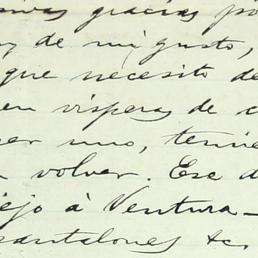 gracias po
de mi gusto,
que necesito de
en visperas de c
er uno, tenie
volver. Ese d
ejo à Ventura—
pantalones &c.